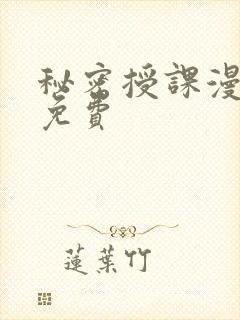 秘密授課漫
免費
蓮葉竹